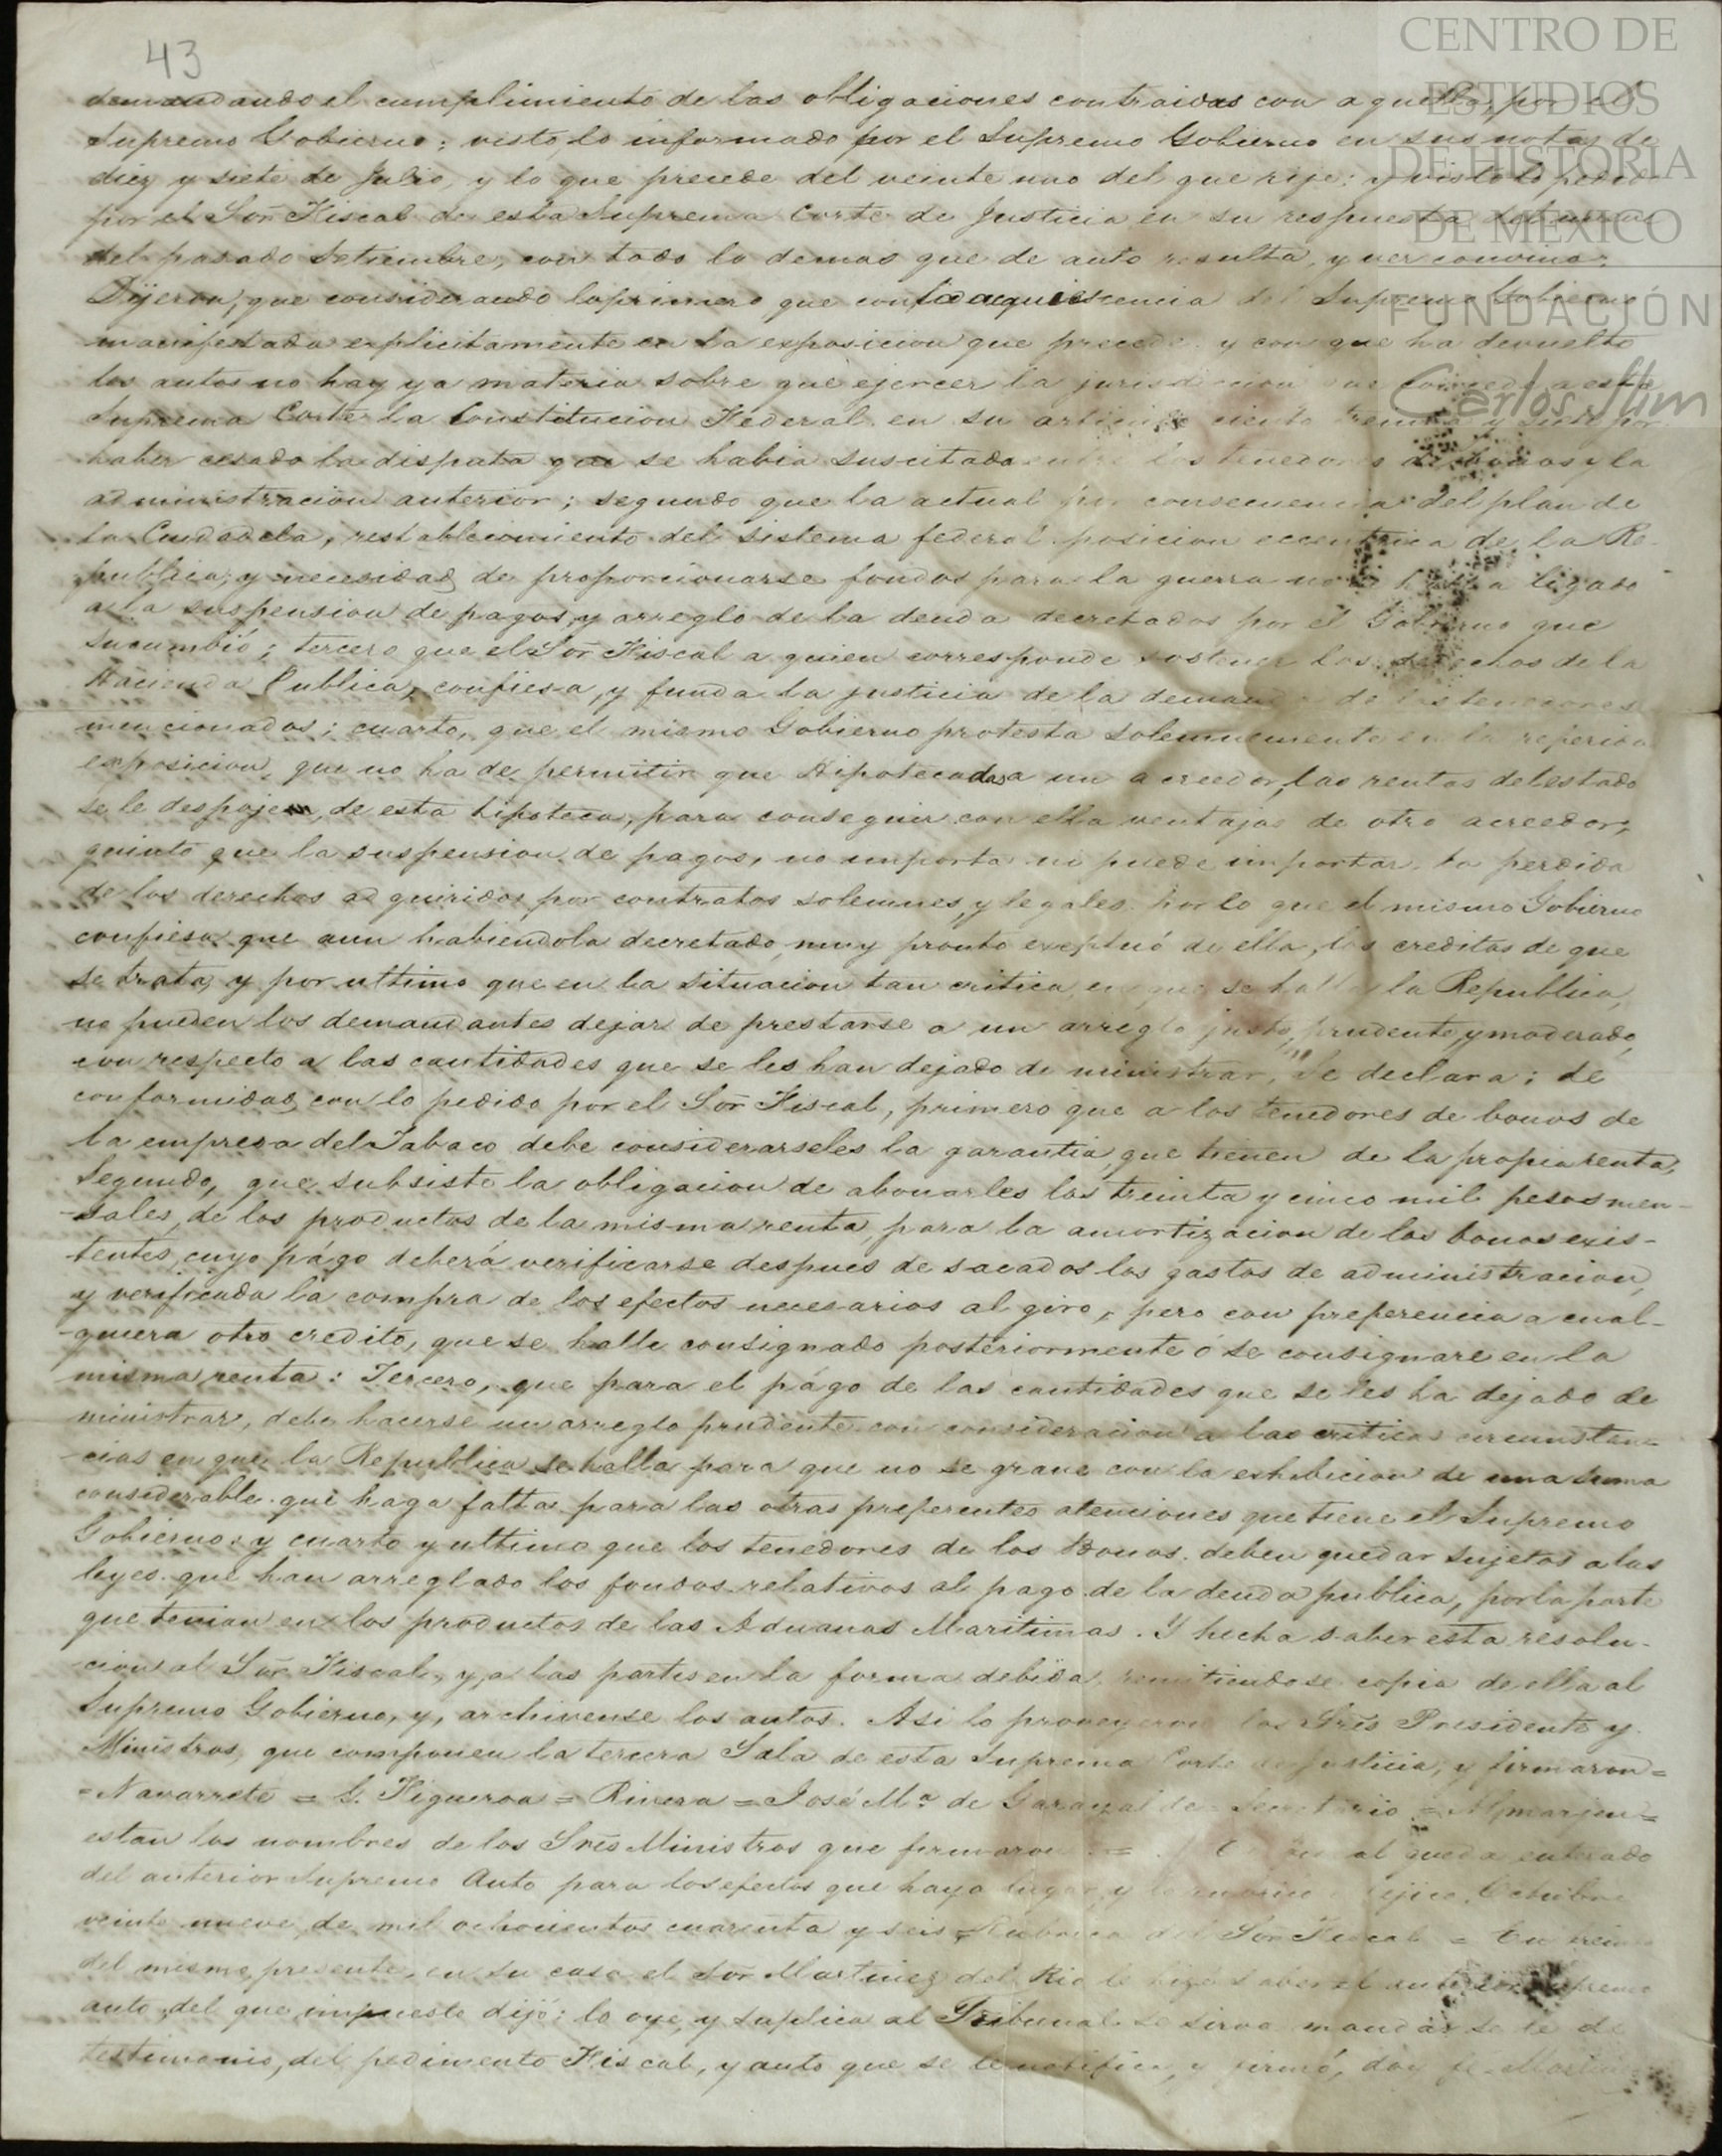 43
CENTRO DE
ESTUDIOS
DE HISTORIA
DE MÉXICO
FUNDACIÓN
Carlos Slim
demandando el cumplimiento de las obligaciones contraidas con aquellos, por el
Supremo Gobierno; visto, lo informado por el Supremo Gobierno en sus notas de
diez y siete de Julio, y lo que precede del veinte uno del que rije; y visto lo pedido
por el Sor̃ Fiscal de esta Suprema Corte de Justicia en su respuesta del
del pasado Setiembre, con todo lo demas que de auto resulta, y ver convino;
Dijeron, que considerando lo primero que con la aquiescencia del Supremo Gobierno
manifestada esplicitamente en la exposicion que precede, y con que ha devuelto
los autos no hay ya materia sobre que ejercer la jurisdiccion que concede a esta
Suprema Corte la Constitucion Federal en su articulo ciento treinta y siete por
haber cesado la disputa que se habia suscitado entre los tenedores de bonos y la
administracion anterior; segundo que la actual por consecuencia del plan de
la Ciudadela, restablecimiento del sistema federal posicion eccentrica de la Re-
publica, y necesidad de proporcionarse fondos para la guerra no ligado
a la suspension de pagos, y arreglo de la deuda decretados por el Gobierno que
sucumbió; tercero que el Sor̃ Fiscal a quien corresponde sostener los derechos de la
Hacienda Publica, confiesa, y funda la justicia de la demanda de los tenedores
mencionados; cuarto, que el mismo Gobierno protesta solemnemente en la referida
exposicion, que no ha de permitir que Hipotecadas a un acreedor, las rentas del estado
se le despoje, de esta hipoteca, para conseguir con ella ventajas de otro acreedor;
quinto que la suspension de pagos, no importa ni puede importar la perdida
de los derechos adquiridos por contratos solemnes, y legales por lo que el mismo Gobierno
confiesa que aun habiendola decretado, muy pronto exeptuó de ella, los creditos de que
se trata, y por ultimo que en la situacion tan critica en que se halla la Republica,
no pueden los demandantes dejar de prestarse a un arreglo justo, prudente y moderado,
con respecto a las cantidades que se les han dejado de ministrar, Se declara; de
conformidad con lo pedido por el Sor̃ Fiscal, primero que a los tenedores de bonos de
la empresa del Tabaco debe considerarseles la garantia, que tienen de la propia renta,
Segundo, que subsiste la obligacion de abonarles los treinta y cinco mil pesos men-
-suales, de los productos de la misma renta, para la amortizacion de los bonos exis-
tentes, cuyo págo deberá verificarse despues de sacados los gastos de administracion,
y verificada la compra de los efectos necesarios al giro, pero con preferencia a cual-
-quiera otro credito, que se halle consignado posteriormente ó se consignare en la
misma renta: Tercero, que para el págo de las cantidades que se les ha dejado de
ministrar, debe hacerse un arreglo prudente con consideracion a las criticas circunstan-
-cias en que la Republica se halla para que no se grave con la eshibicion de una suma
considerable que haga falta para las otras preferentes atenciones que tiene el Supremo
Gobierno; y cuarto y ultimo que los tenedores de los Bonos deben quedar sujetos a las
leyes que han arreglado los fondos relativos al pago de la deuda publica, por la parte
que tenian en los productos de las Aduanas Maritimas. Y hecha saber esta resolu-
-cion al Sor̃ Fiscal, y, a las partes en la forma debida, remitiendose copia de ella al
Supremo Gobierno, y, archivense los autos. Asi lo proveyeron los Sres Presidente y
Ministros, que componen la tercera Sala de esta Suprema Corte de Justicia, y firmaron=
=Navarrete = G. Figueroa = Rivera = José Mª de Garayalde = Secretario = Al marjen=
estan los nombres de los Sres Ministros que firmaron = queda enterado
del anterior Supremo Auto para los efectos que haya lugar, y lo rubricó Mejico, Octubre
veinte nueve de mil ochocientos cuarenta y seis = Rubrica del Sor̃ Fiscal = En treinta
del mismo, presente, en su casa el Sor̃ Martinez del Rio le hize saber el anterior Supremo
auto, del que impuesto dijo: lo oye, y suplica al Tribunal se sirva mandar se le dé
testimonio, del pedimento Fiscal, y auto que se le notifica, y firmó, doy fé